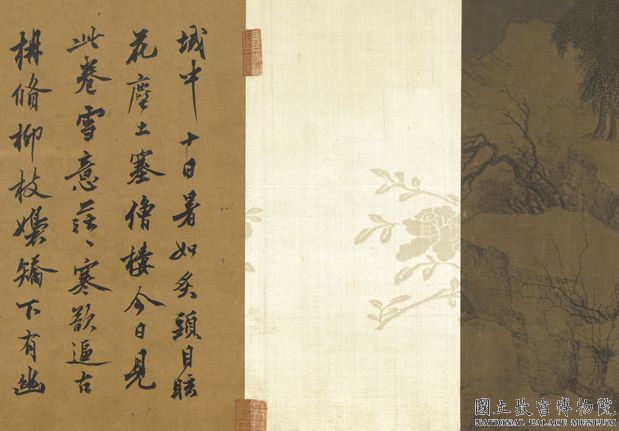 城中十日暑如炙頭目眩
花塵土塞僧樓今日見
此卷雪意茫〻寒欲逼古
柟脩柳枝嬝矯下有幽
國立故宮博物院
NATIONAL PALACE MUSEUM